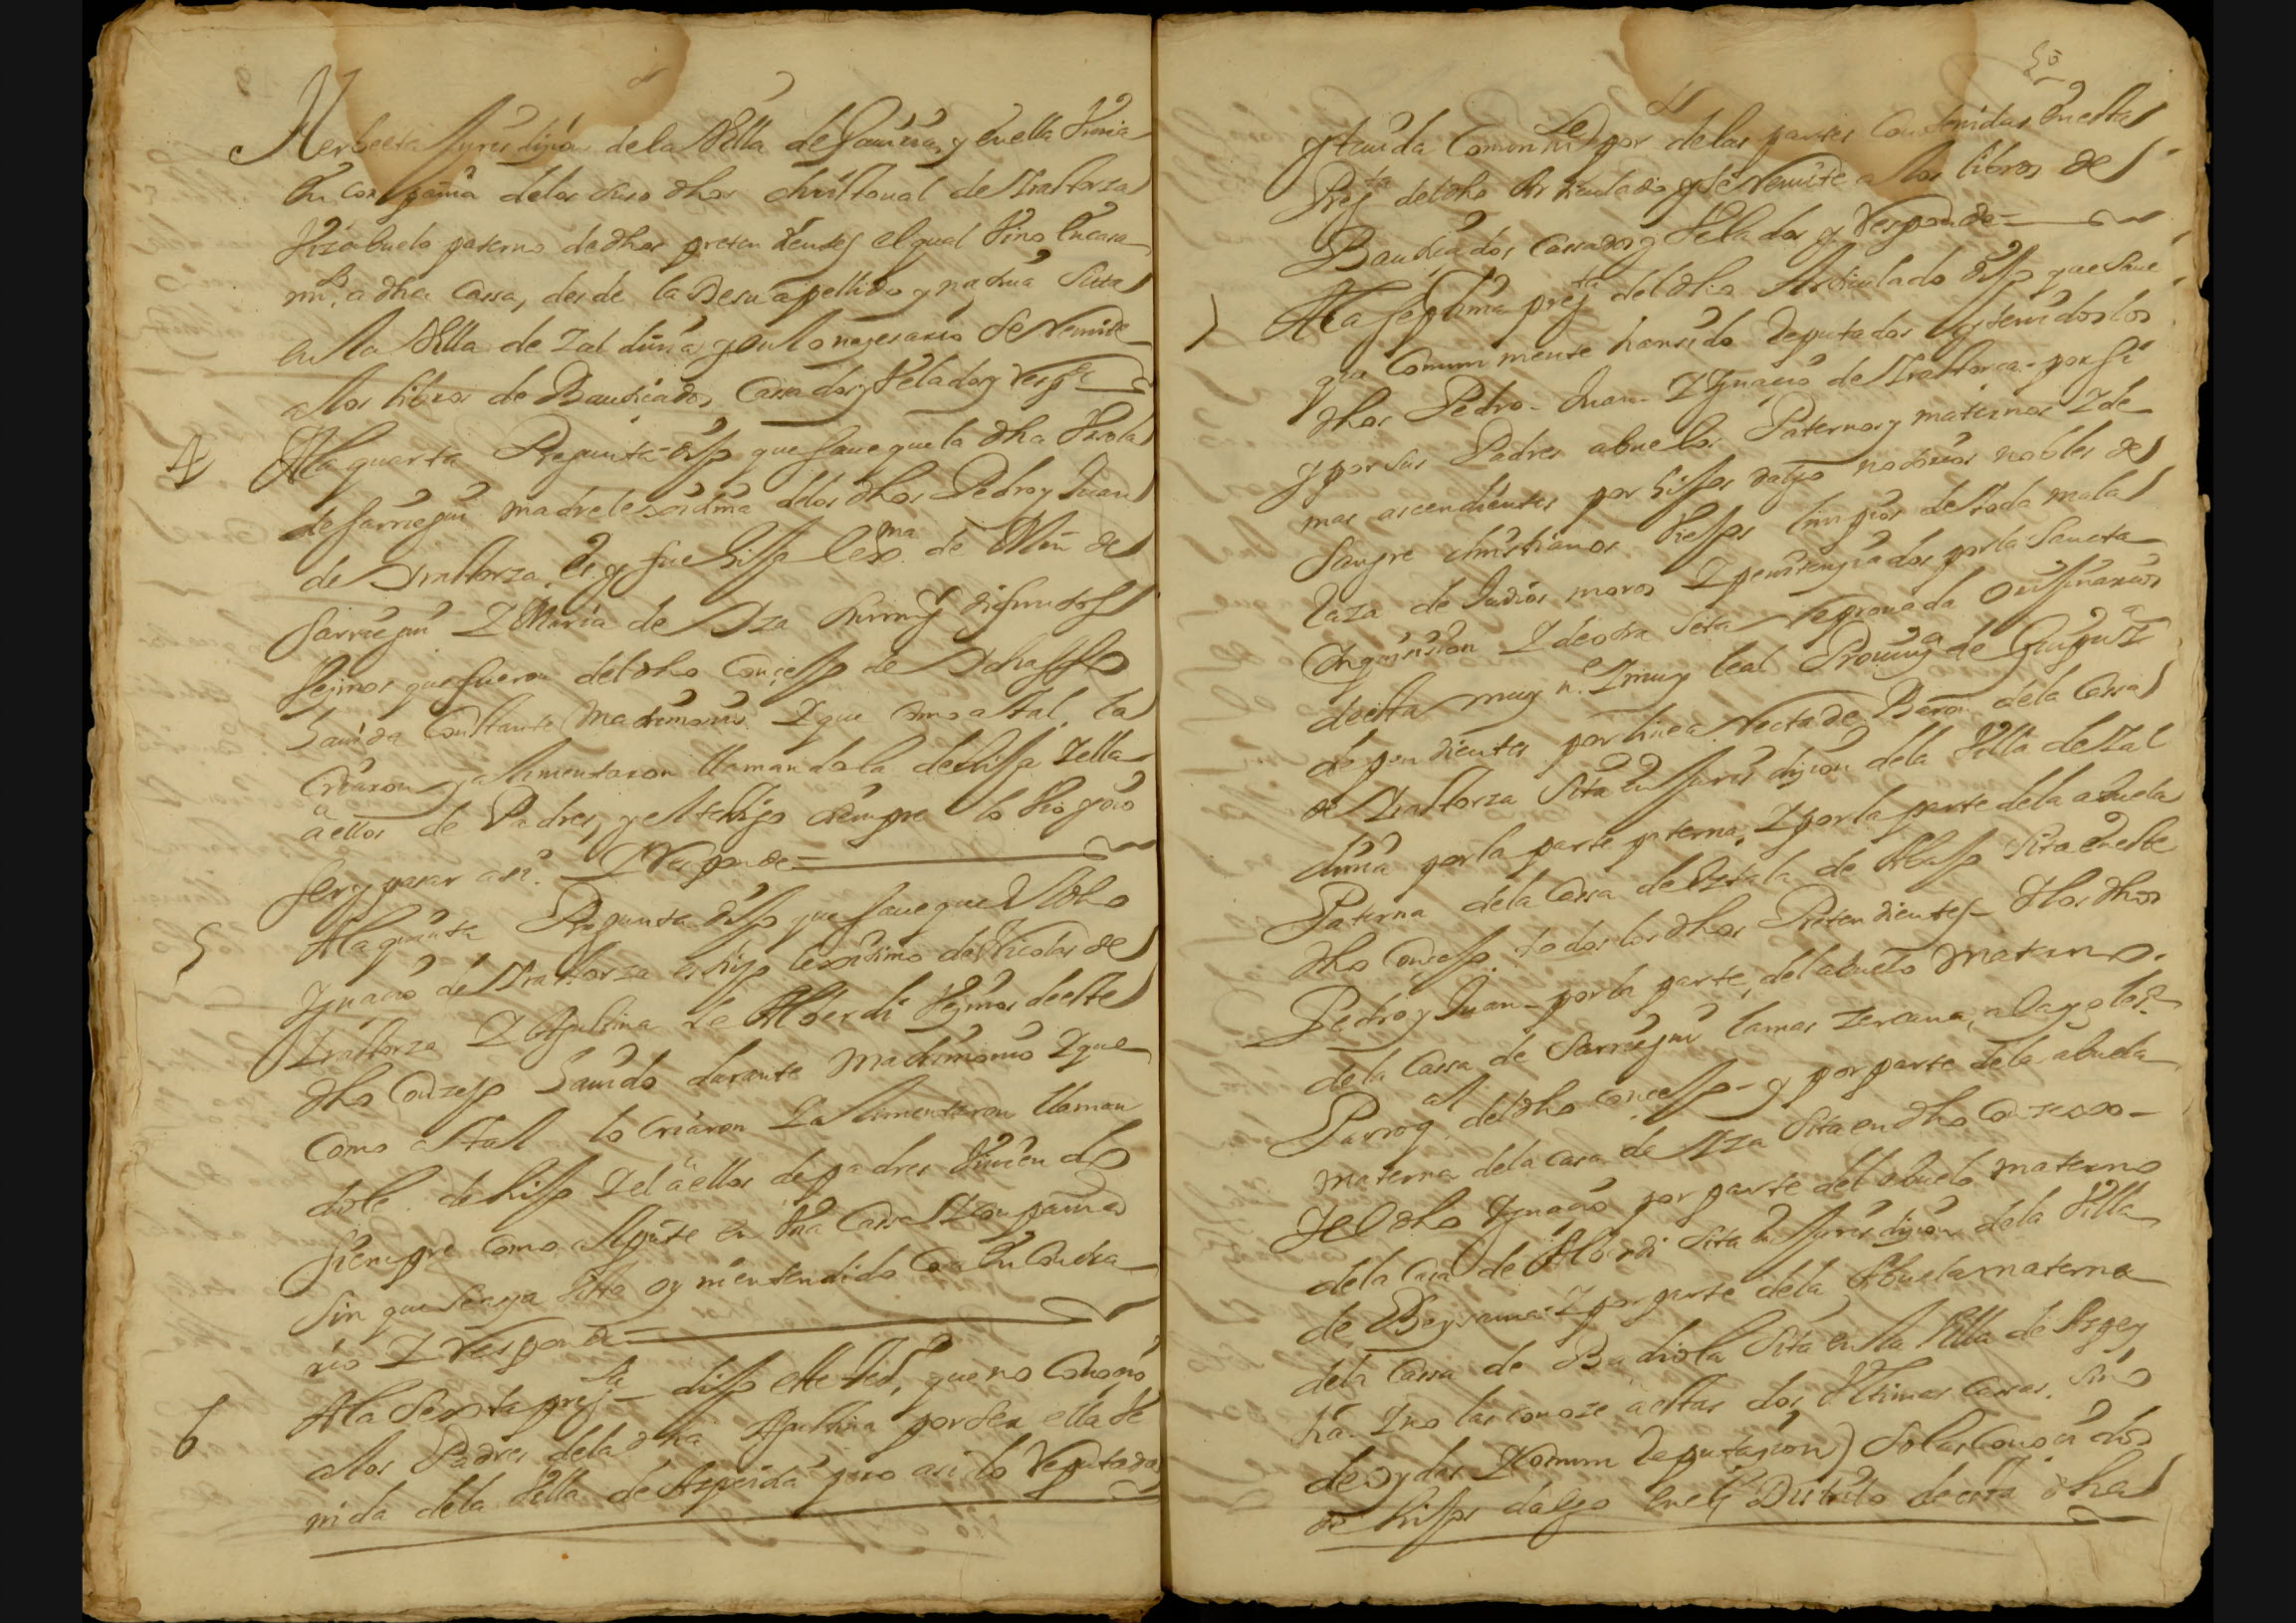 Herbeeta Jurisdiçion de la Villa de Gauiria, y en ella Viuia
En compania de los suso dhos christoual de Irastorza
Vizabuelo paterno de dhos pretendientes el qual Vino En casa
mto. a dha Cassa, desde la de su apellido y natiua Sita
en la Villa de Zalduuia y en lo neçesario Se Remite
a los libros de Bautiçados, Casados y Velados y Respde
4 A la quarta Pregunta dijo que saue que la dha
de Sarriegui madre lexitima de los dhos Pedro y Juan
de Irastorza, es y fue hija lexma de Min de
Sarriegui Y Maria de Iza difuntos
Veçinos que fueron del dho Conçejo de
hauida Constante Matrimonio Y que como a tal, la
Criaron y alimentaron llamandola de hija Y ella
a ellos de Padres, y el testigo siempre lo Vio y oio
ser y pasar asi. Y Responde
5 A la quinta Pregunta dijo que saue que el dho
Ygnacio de Irastorza es hijo lexitimo de Nicolas de
Irastorza Y Agustina de Alberdi Veçinos de este
dho Conzejo hauido durante Matrimonio Y que
Como a tal lo Criaron Y alimentaron llaman
dole de hijo Y el a ellos de padres Viuiendo
siempre Como al pnte en Vna Cassa Y compania
sin que Se aya Visto oy ni entendido Cosa En Contra
rio Y Responde
6 A la Sexta pregta dijo este testo, que no Conoçio
a los Padres de la dha Agustina por ser ella Ve
nida de la Villa de Azpeitia pero asi lo Reputada
50
y tenida Comunmte por de las partes Contenidas En esta
Pregta del dho Articulado y se Remite a los libros de
Bautiçados Cassados y Velados y Responde
7 A la septima pregta del dho Articulado dijo que saue
que Comunmente han sido Reputados y tenidos los
dhos Pedro - Juan - Y Ygnacio de Irastorza - por si
y por sus Padres abuelos Paternos y maternos Y de
mas ascendientes por hijos dalgo notorios nobles de
Sangre christianos Viejos limpios de toda mala
Raza de Judios moros Y penitençiados por la Sancta
Inquisision Y de otra Seta reprouada originarios
de esta muy n.e Y muy leal Prouinça de Guipuza
dependientes por linea Recta de Baron de la Cassa
de Irastorza Sita en Jurisdiçion de la Villa de Zal
duuia por la parte paterna, Y por la parte de la abuela
Paterna de la Cassa de de Sita en este
dho Conçejo todos los dhos Pretendientes - Y los dhos
Pedro y Juan - por la parte, del abuelo materno.
de la Cassa de Sarriegui la mas zercana, a la yglesa
Parroql del dho conçejo - y por parte de la abuela
materna de la casa de Iza Sita en dho Conzexo -
Y el dho Ygnacio por parte del abuelo materno
de la Casa de Alberdi Sita en Jurisdiçion de la Villa
de Beyzama - Y por parte de la Abuela materna
de la Cassa de Badiola Sita en la Villa de Azpey
tia - Y no las conoze a estas dos Vltimas Cassas. Sino
de oydas Y Comun Reputaçion) Solares Conoçidos
de hijos dalgo en el Distrito de esta dha